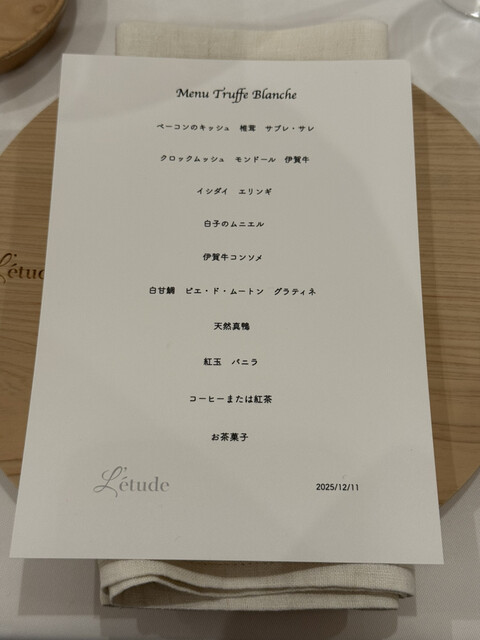 Menu Truffe Blanche
ベーコンのキッシュ　椎茸　サブレ・サレ
クロックムッシュ　モンドール　伊賀牛
イシダイ　エリンギ
白子のムニエル
伊賀牛コンソメ
白甘鯛　ピエ・ド・ムートン　グラティネ
天然真鴨
紅玉　バニラ
コーヒーまたは紅茶
お茶菓子
L'étude
2025/12/11
L'étud